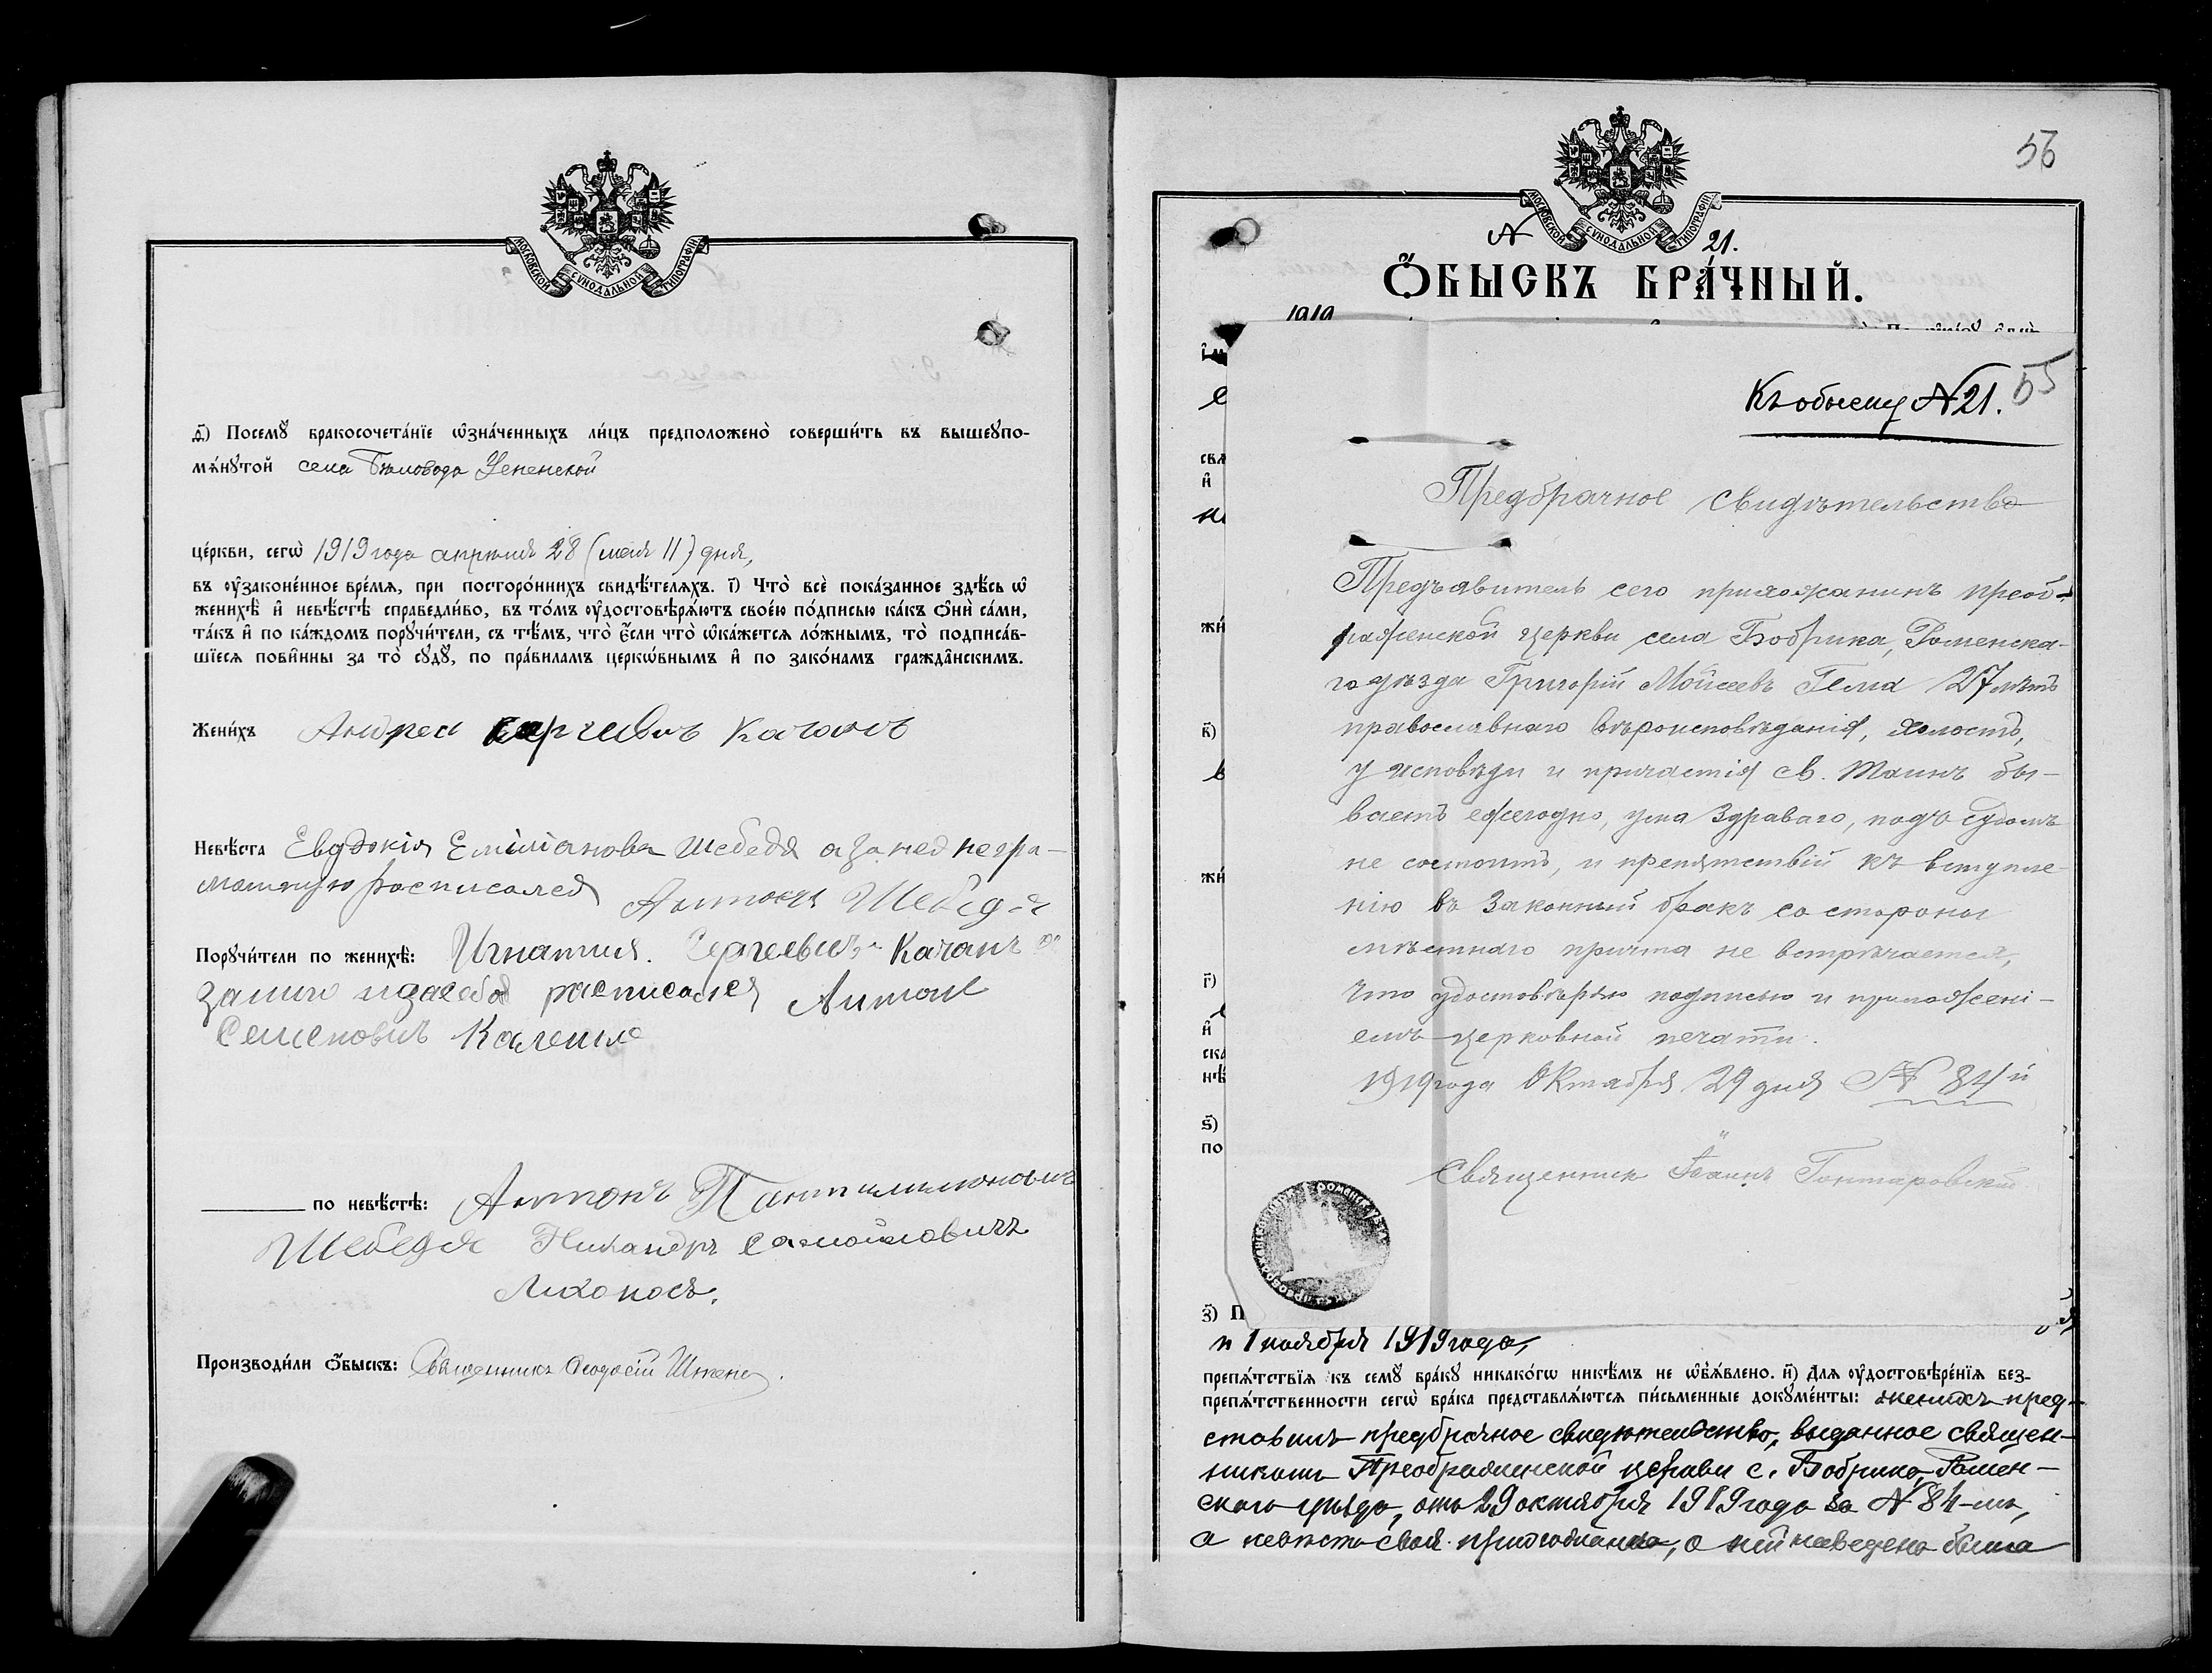 МОСКОВСКОЙ СѴНОДАЛЬНОЙ ТИПОГРАФІИ
д҃) Посемꙋ̀ бракосочета́нїе ѡ҆зна́ченныхъ ли́цъ предположено̀ соверши́ть въ вышеꙋпо-
мѧ́нꙋтой села Бѣловода Успенской
це́ркви, сегѡ̀ 1919 года апрѣля 28 (мая 11) дня,
въ ᲂу҆законе́нное вре́мѧ, при посторо́ннихъ свидѣ́телѧхъ. і҃) Что̀ всѐ пока́занное здѣ́сь ѡ҆
женихѣ̀ и҆ невѣ́стѣ справедли́во, въ то́мъ ᲂу҆достовѣрѧ́ютъ свое́ю по́дписью ка́къ ѻ҆нѝ са́ми,
та́къ и҆ по ка́ждомъ порꙋчи́тели, съ тѣ́мъ, что̀ є҆́сли что̀ ѡ҆ка́жется ло́жнымъ, то̀ подписа́в-
шїеся пови́нны за то̀ сꙋдꙋ̀, по пра́виламъ церкѡ́внымъ и҆ по зако́намъ гражда́нскимъ.
Жени́хъ Андрей Сергѣевъ Качанъ
Невѣ́ста Евдокія Емиліанова Шебедя а за нея негра-
мотную росписался Антонъ Шебедя
Порꙋчи́тели по женихѣ̀: Игнатий Сергѣевичъ Качанъ
за него и за себя росписался Антон
Семеновичъ Каленик
по невѣ́стѣ: Антонъ Пантилимоновичъ
Шебедя Никандръ Самойловичъ
Лихоносъ.
Производи́ли ѻ҆́быскъ: Священникъ Ѳеодосій
56
МОСКОВСКОЙ СѴНОДАЛЬНОЙ ТИПОГРАФІИ
N 21.
Ѻ҆́БЫСКЪ БРА́ЧНЫЙ.
1919
Къ обыску N 21. 55
Предбрачное свидѣтельство
Предъявитель сего прихожанинъ Преоб-
раженской церкви села Бобрика, Роменска-
го уѣзда Григорій Мойсеевъ Гема 27 лѣтъ
православнаго вѣроисповѣданія, холостъ,
у исповѣди и причастія св. Таинъ бы-
ваетъ ежегодно, ума здраваго, подъ судомъ
не состоитъ, и препятствій къ вступле-
нію въ законный бракъ со стороны
мѣстнаго причта не встрѣчается,
что удостовѣряю подписью и приложені-
емъ церковной печати.
1919 года Октября 29 дня N 84й
Священникъ Іоаннъ Гонтаровскій
з҃) П
и 1 ноября 1919 года,
препѧ́тствїѧ къ семꙋ̀ бра́кꙋ никако́гѡ никѣ́мъ не ѡ҆б̾ѧ́влено. и҃) Для ᲂу҆достовѣре́нїѧ без-
препѧ́тственности сегѡ̀ бра́ка представлѧ́ются пи́сьменные докꙋме́нты: женихъ пред-
ставилъ предбрачное свидѣтельство, выданное священ-
никомъ Преображенской церкви с. Бобрика, Ромен-
скаго уѣзда, отъ 29 октября 1919 года за N 84-мъ,
а невѣста своя прихожанка, о ней наведена была